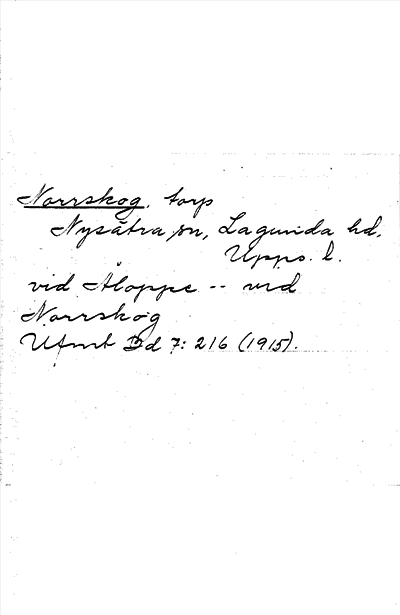 Norrskog, torp
Nysätra sn, Lagunda hd.
Upps. l.
vid Åloppe -- vid
Norrskog
Ufmt Bd 7: 216 (1915).